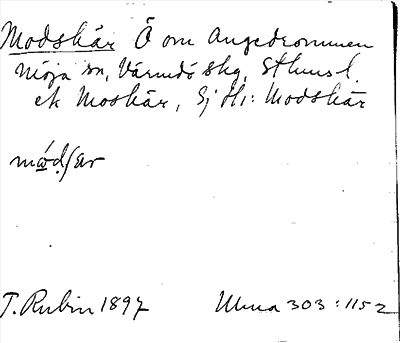 Modskär Ö om Angedrommen
Möja sn, Värmdö skg, Sthms l.
ek Moskär, Sj H: Modskär
mɷd.ʃær
T. Rubin 1897 Uma 303:115 2